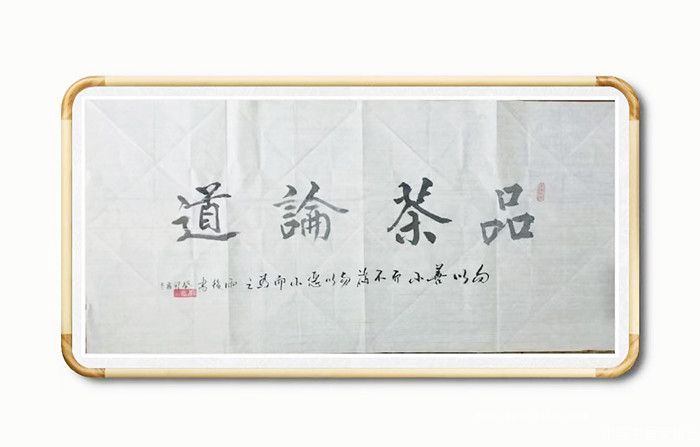 品茶論道
勿以善小而不為勿以惡小而為之